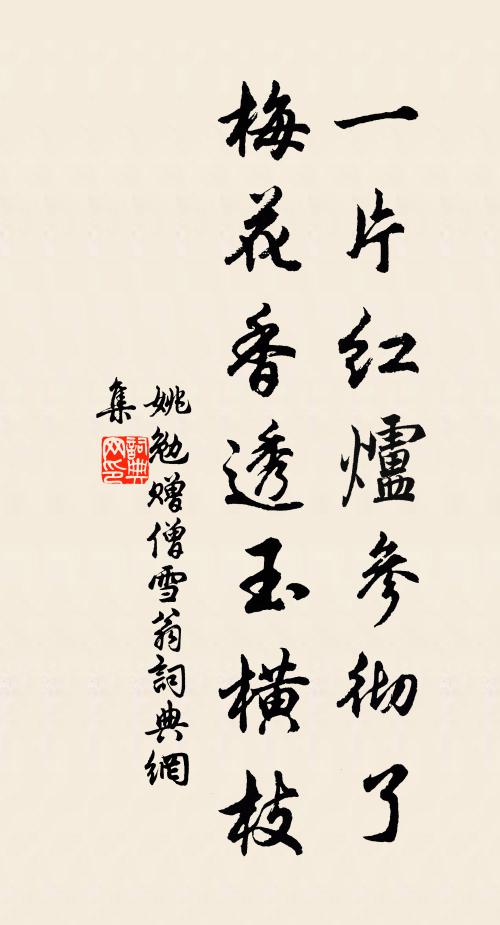 一片红爐參彻了
梅花香透玉橫枝
姚勉赠僧雪翁詞典網
集
詞典
网印